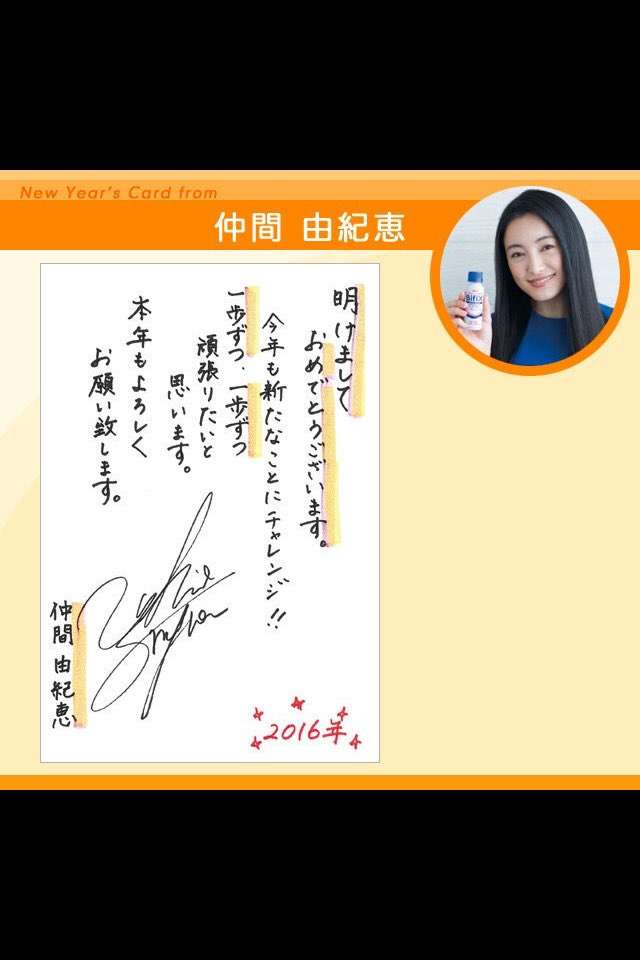 New Year's Card from
仲間 由紀恵
BifiX
明けまして
おめでとうございます。
今年も新たなことにチャレンジ!!
一歩ずつ、一歩ずつ
頑張りたいと
思います。
本年もよろしく
お願い致します。
仲間 由紀恵
2016年